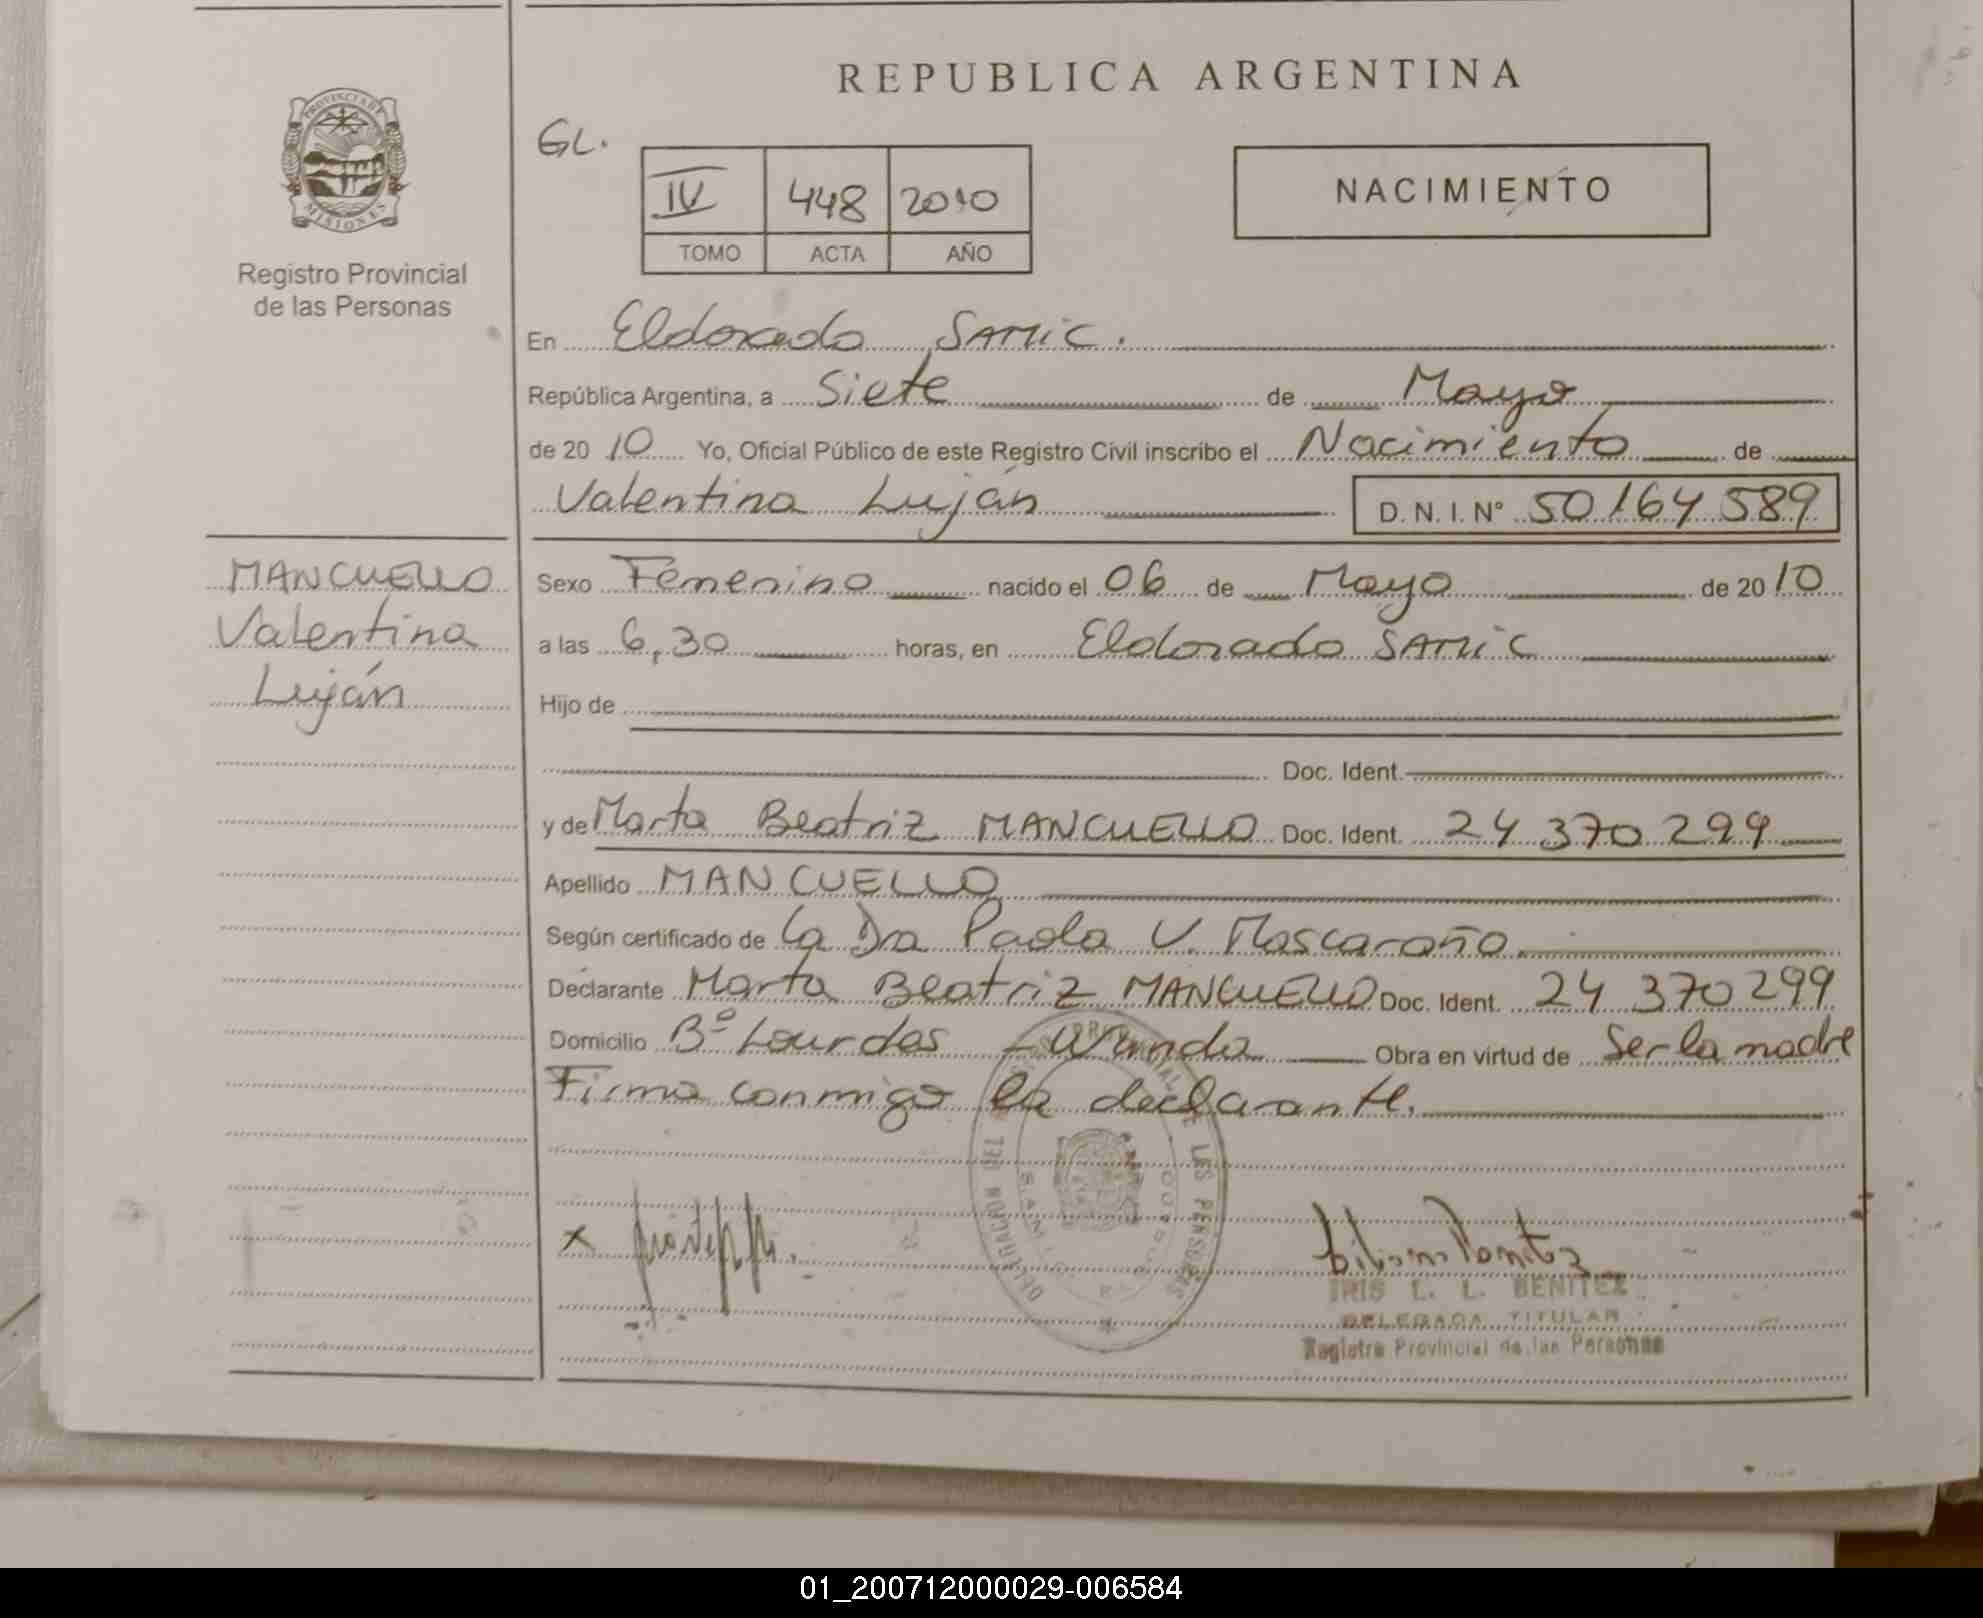 REPUBLICA ARGENTINA
PROVINCIA DE
MISIONES
Registro Provincial
de las Personas
GL.
IV 448 2010
TOMO ACTA AÑO
NACIMIENTO
En Eldorado SAMIC.
República Argentina, a Siete de Mayo
de 20 10 Yo, Oficial Público de este Registro Civil inscribo el Nacimiento de
Valentina Luján D. N. I. N° 50 164 589
MANCUELLO
Valentina
Luján
Sexo Femenino nacido el 06 de Mayo de 20 10
a las 6,30 horas, en Eldorado SAMIC
Hijo de
Doc. Ident.
y de Marta Beatriz MANCUELLO Doc. Ident. 24 370 299
Apellido MANCUELLO
Según certificado de la Dra Paola V. Mascaraño
Declarante Marta Beatriz MANCUELLO Doc. Ident. 24 370 299
Domicilio Bº Lourdes - Wanda Obra en virtud de Ser la madre
Firma conmigo la declarante.
DELEGACION DEL PROVINCIAL DE LES PERSONAS
x
IRIS L. L. BENITEZ
DELEGADA TITULAR
Registro Provincial de las Personas
01_200712000029-006584